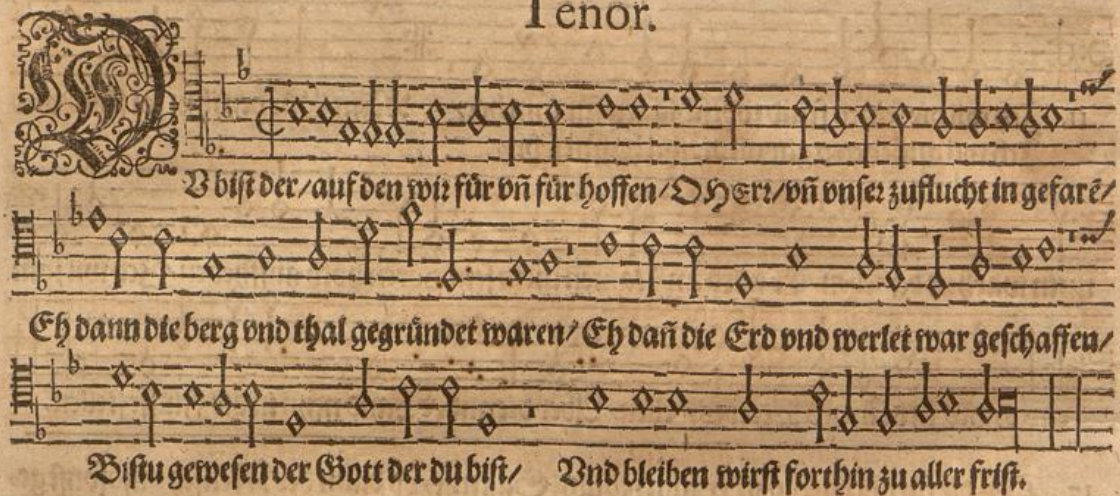 Tenor.
DV bist der/auf den wir für vñ für hoffen/O HErr/vñ vnser zuflucht in gefarē/
Eh dann die berg vnd thal gegründet waren/ Eh dañ die Erd vnd werlet war geschaffen/
Bistu gewesen der Gott der du bist/ Vnd bleiben wirst forthin zu aller frist.